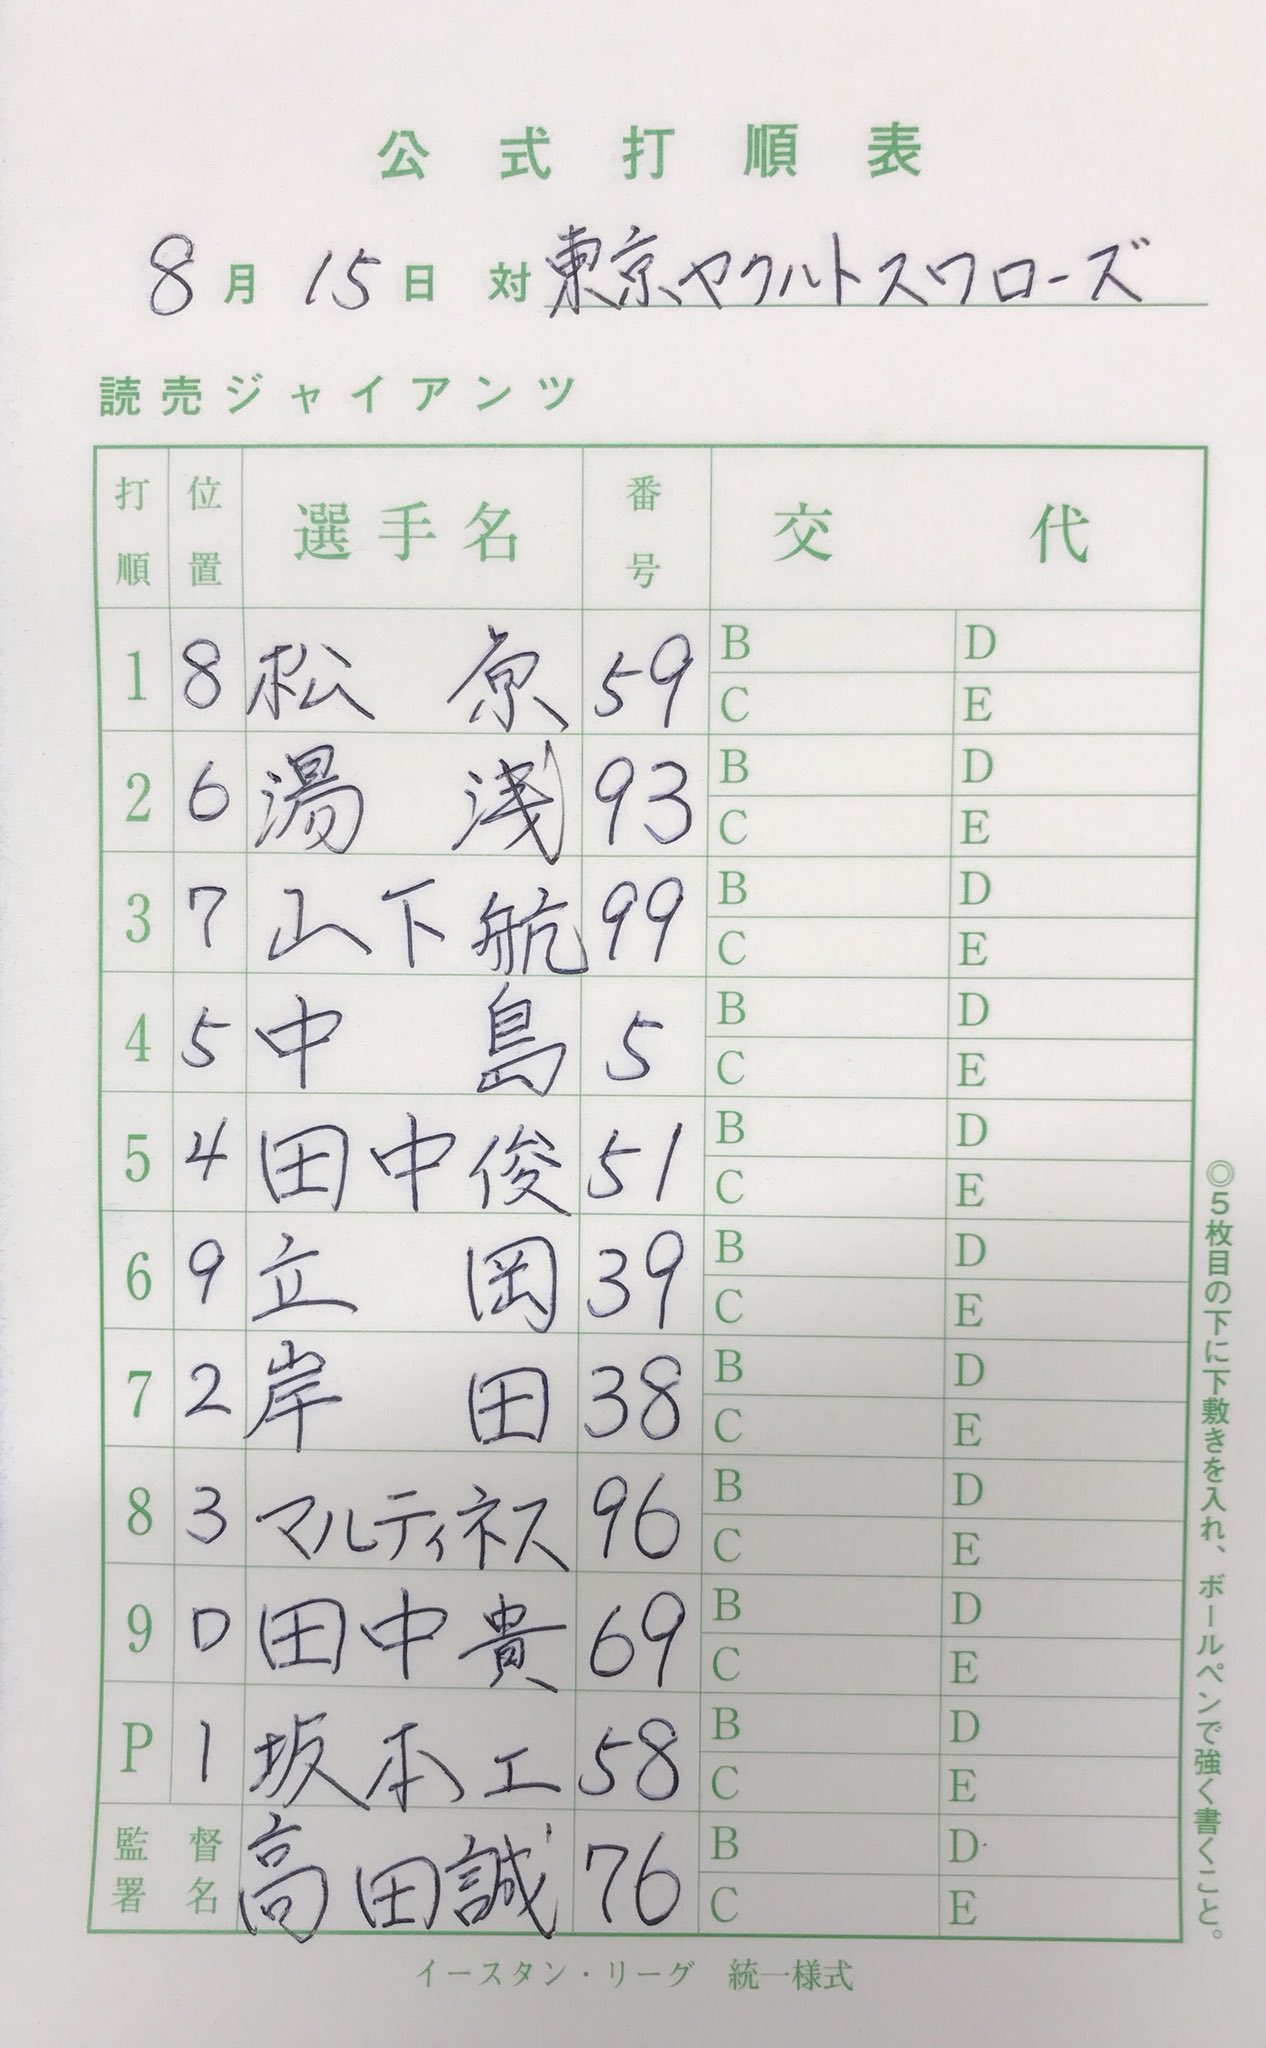 公式打順表
8月15日 対 東京ヤクルトスワローズ
読売ジャイアンツ
打順 位置 選手名 番号 交代
1 8 松原 59 B D
C E
2 6 湯浅 93 B D
C E
3 7 山下航 99 B D
C E
4 5 中島 5 B D
C E
5 4 田中俊 51 B D
C E
6 9 立岡 39 B D
C E
7 2 岸田 38 B D
C E
8 3 マルティネス 96 B D
C E
9 D 田中貴 69 B D
C E
P 1 坂本工 58 B D
C E
監督署名 高田誠 76 B D
C E
◎5枚目の下に下敷きを入れ、ボールペンで強く書くこと。
イースタン・リーグ 統一様式